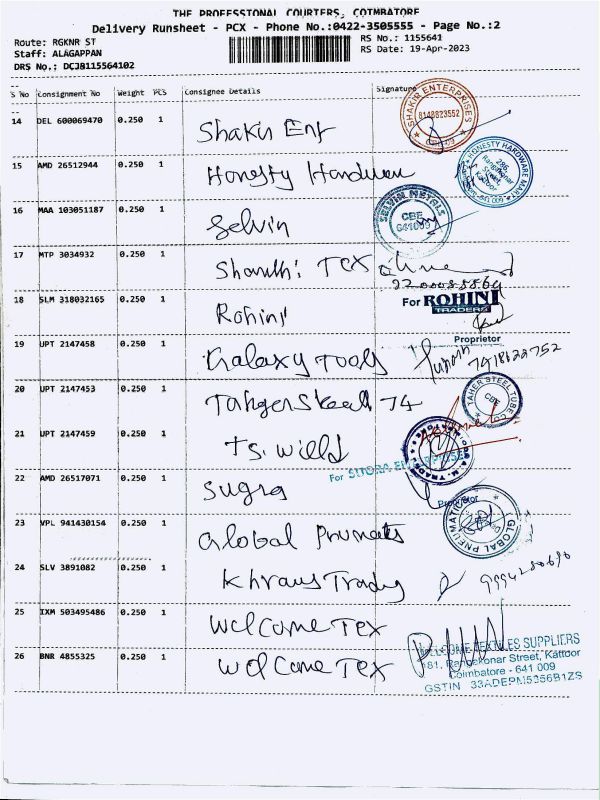 THE PROFESSIONAL COURIERS, COIMBATORE
Delivery Runsheet - PCX - Phone No.:0422-3505555 - Page No.:2
Route: RGKNR ST
Staff: ALAGAPPAN
DRS No.: DCJB115564102
RS No.: 1155641
RS Date: 19-Apr-2023
S No Consignment No Weight PCS Consignee Details Signature
14 DEL 600069470 0.250 1 Shakir Ent
SHAKIR ENTERPRISES
8148823552
15 AMD 26512944 0.250 1 Honesty Hardware
HONESTY HARDWARE MART
286,
Street,
Kattoor
641 009
16 MAA 103051187 0.250 1 Selvin
SELVIN METALS
CBE
641009
17 MTP 3034932 0.250 1 Shanthi Tex
18 SLM 318032165 0.250 1 Rohini
For ROHINI
TRADERS
Proprietor
19 UPT 2147458 0.250 1 Galaxy Tools
20 UPT 2147453 0.250 1
TAHER STEEL TUBE CO
CBE
21 UPT 2147459 0.250 1 T.S. Willd
22 AMD 26517071 0.250 1 Sugra
For SUGRA ENTERPRISES
Proprietor
23 VPL 941430154 0.250 1 Global Prumats
GLOBAL PNEUMATIC
24 SLV 3891082 0.250 1 Khraus Trading
25 IXM 503495486 0.250 1 Welcome Tex
26 BNR 4855325 0.250 1 Welcome Tex
WELCOME TEXTILES SUPPLIERS
181, Rengakonar Street, Kattoor
Coimbatore - 641 009
GSTIN 33ADEPM5356B1ZS